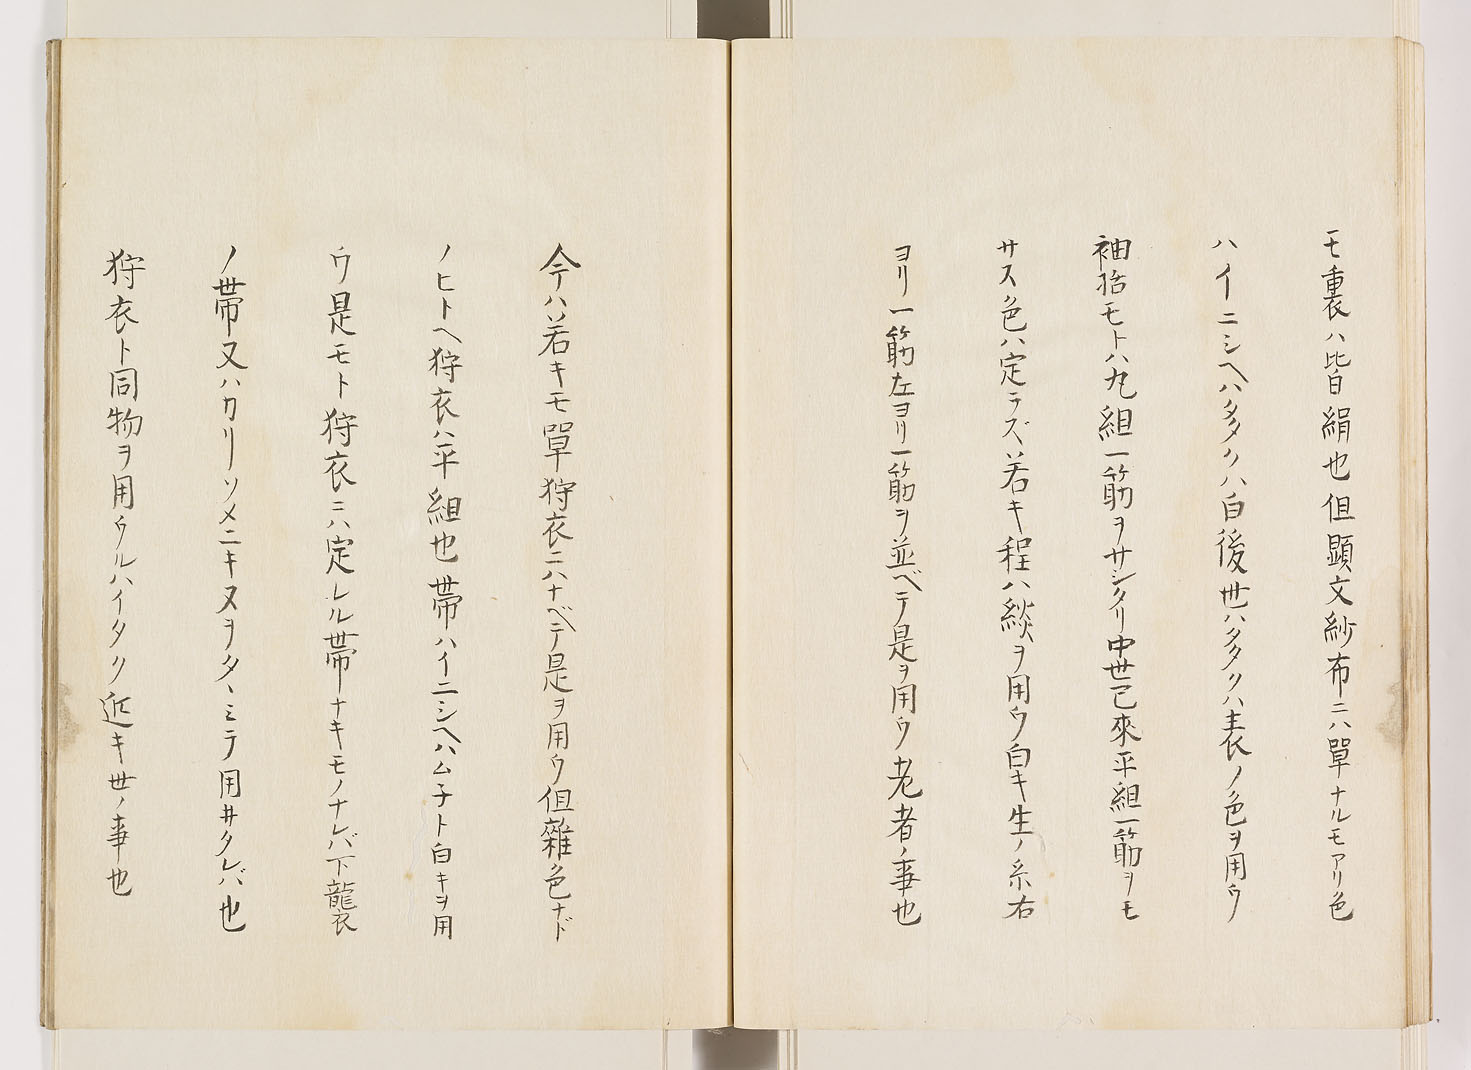 モ裏ハ皆絹也但顕文紗布ニハ單ナルモアリ色
ハイニシヘハ多クハ白後世ハ多クハ表ノ色ヲ用ウ
袖括モトハ丸組一筋ヲサシタリ中世已來平組一筋ヲモ
サス色ハ定ラズ若キ程ハ緂ヲ用ウ白キ生ノ糸右
ヨリ一筋左ヨリ一筋ヲ並ベテ是ヲ用ウ老者ノ事也
今ハ若キモ單狩衣ニハナベテ是ヲ用ウ但雜色ナド
ノヒトヘ狩衣ハ平組也帯ハイニシヘハムネト白キヲ用
ウ是モト狩衣ニハ定レル帯ナキモノナレバ下襲
ノ帯又ハカリソメニキヌヲタヽミテ用井タレバ也
狩衣ト同物ヲ用ウルハイタク近キ世ノ事也